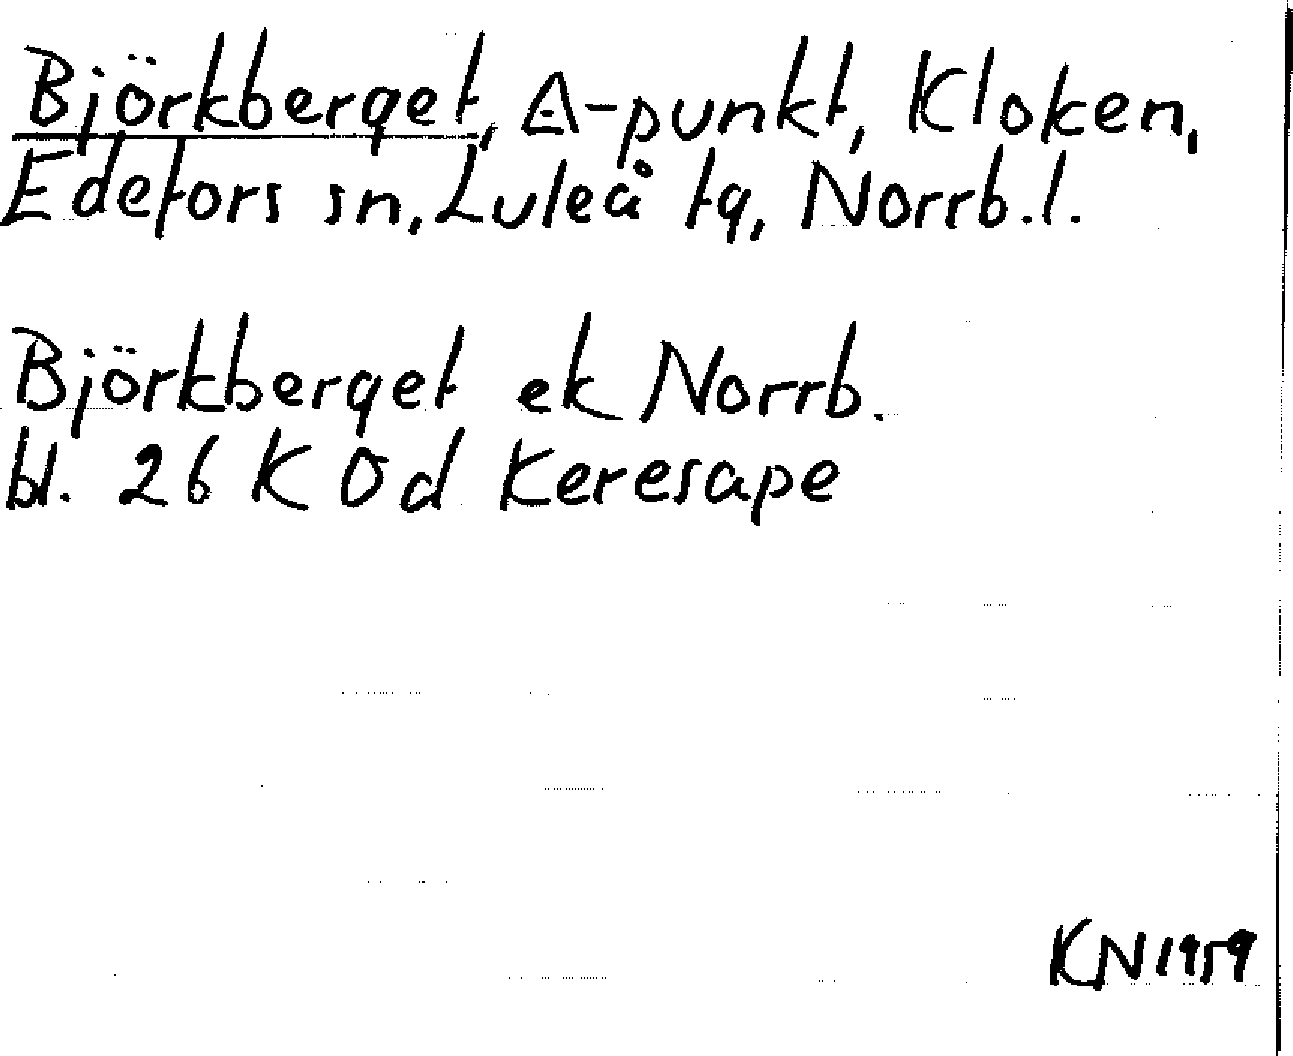 Björkberget, △-punkt, Kloken,
Edefors sn, Luleå tg, Norrb. l.
Björkberget ek Norrb.
bl. 26 K 0d Keresape
KN 1959